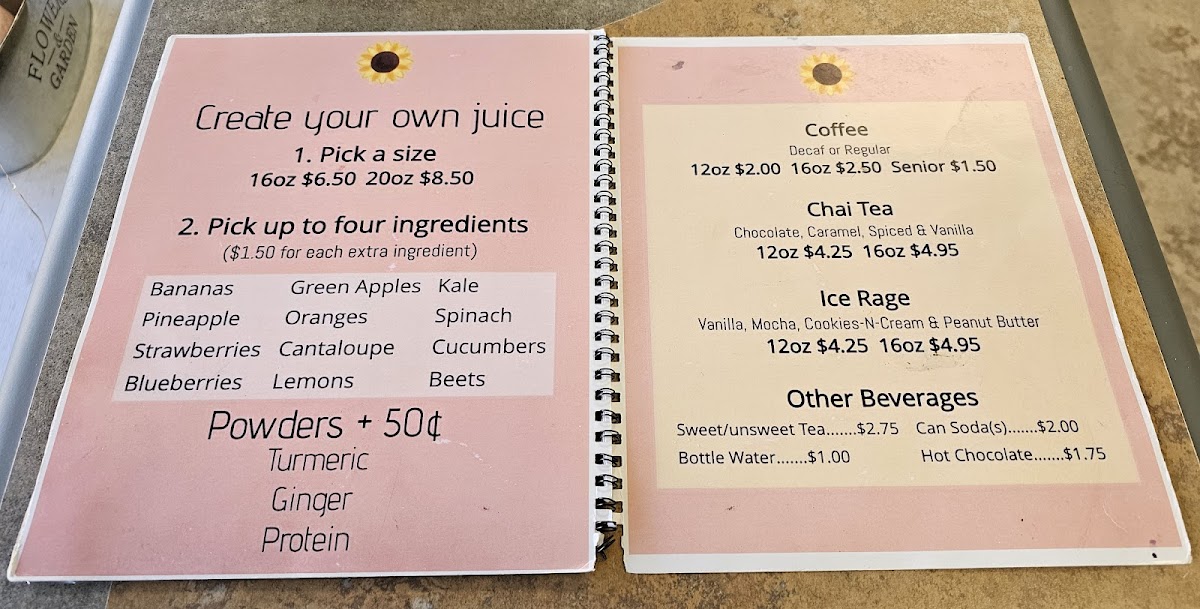 FLOWERS
&
GARDEN
Create your own juice
1. Pick a size
16oz $6.50 20oz $8.50
2. Pick up to four ingredients
($1.50 for each extra ingredient)
Bananas Green Apples Kale
Pineapple Oranges Spinach
Strawberries Cantaloupe Cucumbers
Blueberries Lemons Beets
Powders + 50¢
Turmeric
Ginger
Protein
Coffee
Decaf or Regular
12oz $2.00 16oz $2.50 Senior $1.50
Chai Tea
Chocolate, Caramel, Spiced & Vanilla
12oz $4.25 16oz $4.95
Ice Rage
Vanilla, Mocha, Cookies-N-Cream & Peanut Butter
12oz $4.25 16oz $4.95
Other Beverages
Sweet/unsweet Tea.......$2.75 Can Soda(s).......$2.00
Bottle Water.......$1.00 Hot Chocolate.......$1.75